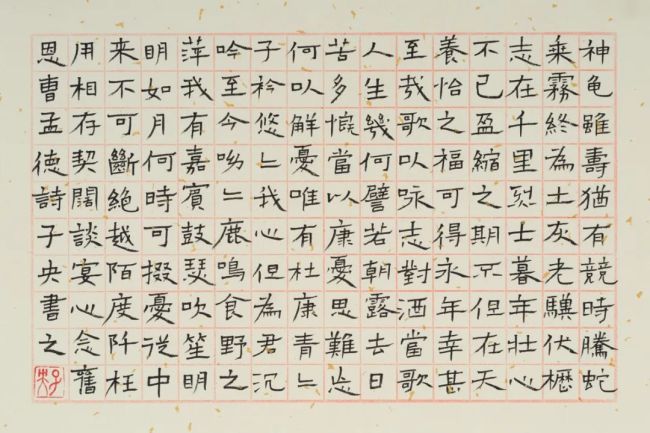 神龟雖壽猶有競時騰蛇
乘霧終為土灰老驥伏櫪
志在千里烈士暮年壯心
不已盈縮之期不但在天
養怡之福可得永年幸甚
至哉歌以咏志對酒當歌
人生幾何譬若朝露去日
苦多慨當以康憂思難忘
何以解憂唯有杜康青〻
子衿悠〻我心但為君沉
吟至今呦〻鹿鳴食野之
萍我有嘉賓鼓瑟吹笙明
明如月何時可掇憂從中
来不可斷絕越陌度阡枉
用相存契闊談宴心念舊
恩曹孟德詩子央書之